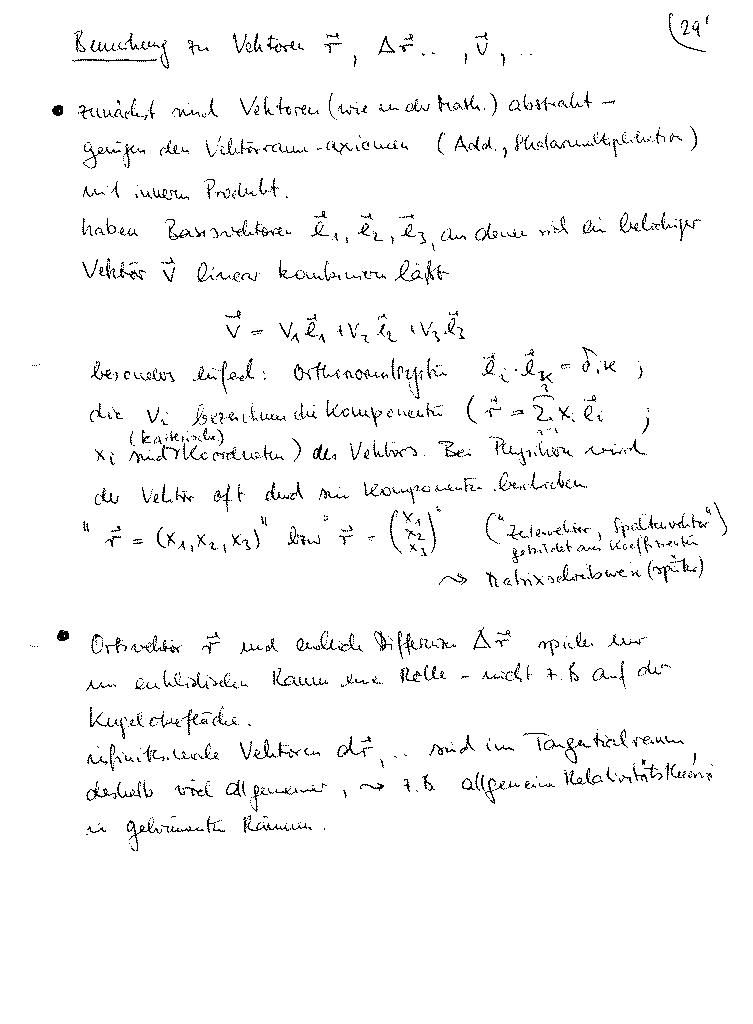 (29'
Bemerkung zu Vektoren r⃗, Δr⃗.. , v⃗, ..
• zunächst sind Vektoren (wie in der Math.) abstrakt –
genügen den Vektorraum-axiomen (Add., Skalarmultiplikation)
mit innerem Produkt.
haben Basisvektoren e⃗₁, e⃗₂, e⃗₃, aus denen sich ein beliebiger
Vektor v⃗ linear kombinieren läßt
v⃗ = v₁e⃗₁ + v₂e⃗₂ + v₃e⃗₃
besonders einfach: Orthonormalsystem e⃗ᵢ · e⃗ₖ = δᵢₖ ;
die vᵢ bezeichnen die Komponenten (r⃗ = Σ³ᵢ₌₁ xᵢ e⃗ᵢ ;
(kartesische)
xᵢ sind Koordinaten) des Vektors. Bei Physikern wird
der Vektor oft durch seine Komponenten beschrieben
" r⃗ = (x₁, x₂, x₃) " bzw " r⃗ = (x₁ x₂ x₃) " ("Zeilenvektor, Spaltenvektor")
gebildet aus Koeffizienten
⇝ Matrixschreibweise (später)
• Ortsvektor r⃗ und endliche Differenzen Δr⃗ spielen nur
im euklidischen Raum eine Rolle – nicht z.B. auf der
Kugeloberfläche.
infinitesimale Vektoren dr⃗, .. sind im Tangentialraum,
deshalb viel allgemeiner, ⇝ z.B. allgemeine Relativitätstheorie
in gekrümmten Räumen.